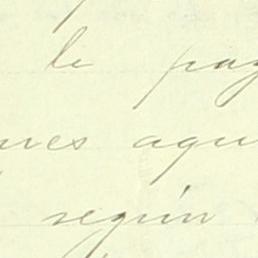 le pag
nes aqu
según